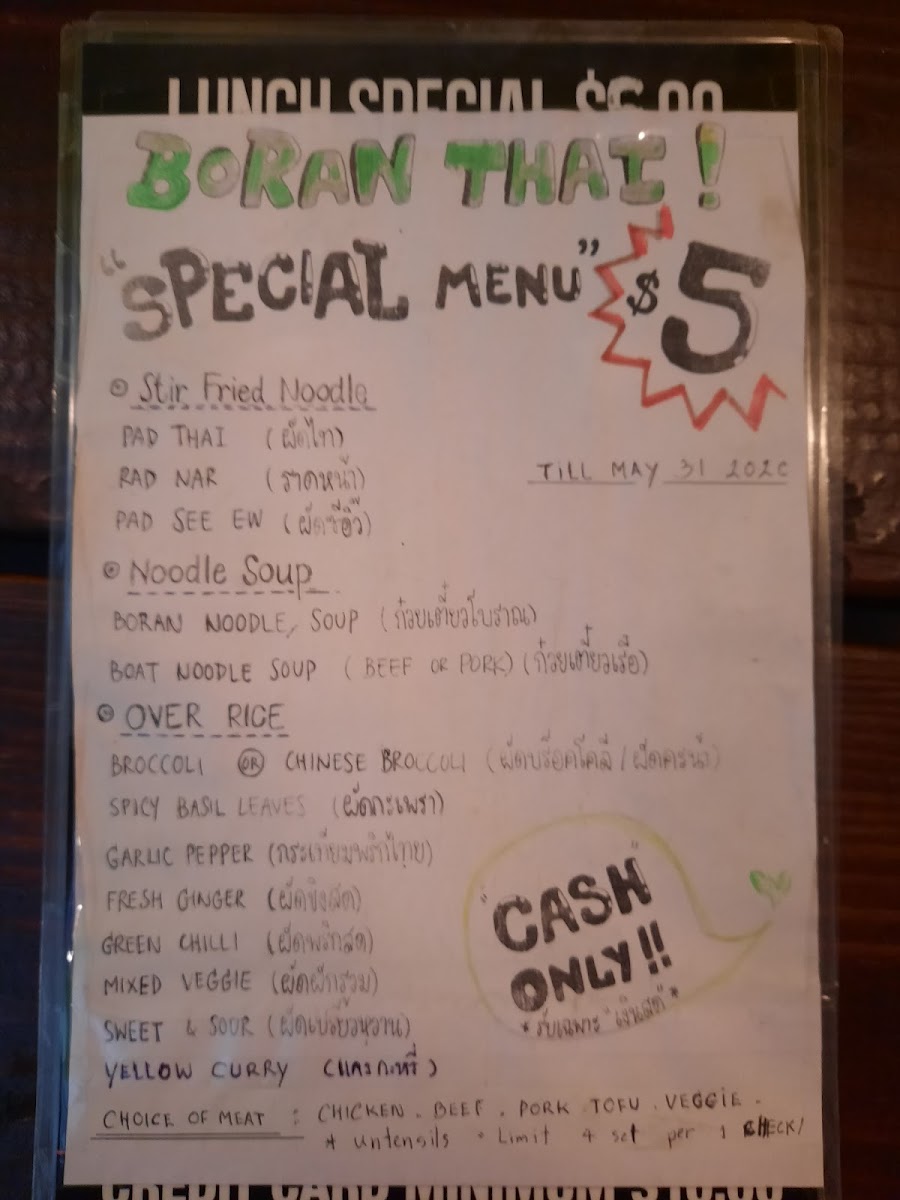 LUNCH SPECIAL $6.00
BORAN THAI!
"SPECIAL MENU" $5
Stir Fried Noodle
PAD THAI (ผัดไท)
RAD NAR (ราดหน้า)
TILL MAY 31 2020
PAD SEE EW (ผัดซีอิ๊ว)
Noodle Soup
BORAN NOODLE SOUP (ก๋วยเตี๋ยวโบราณ)
BOAT NOODLE SOUP (BEEF OR PORK) (ก๋วยเตี๋ยวเรือ)
OVER RICE
BROCCOLI OR CHINESE BROCCOLI (ผัดบร็อคโคลี / ผัดคะน้า)
SPICY BASIL LEAVES (ผัดกะเพรา)
GARLIC PEPPER (กระเทียมพริกไทย)
FRESH GINGER (ผัดขิงสด)
GREEN CHILLI (ผัดพริกสด)
MIXED VEGGIE (ผัดผักรวม)
SWEET & SOUR (ผัดเปรี้ยวหวาน)
YELLOW CURRY (แกงกะหรี่)
"CASH"
ONLY!!
* รับเฉพาะ "เงินสด" *
CHOICE OF MEAT : CHICKEN . BEEF . PORK TOFU . VEGGIE .
* untensils * Limit 4 set per 1 CHECK/
CREDIT CARD MINIMUM $10.00